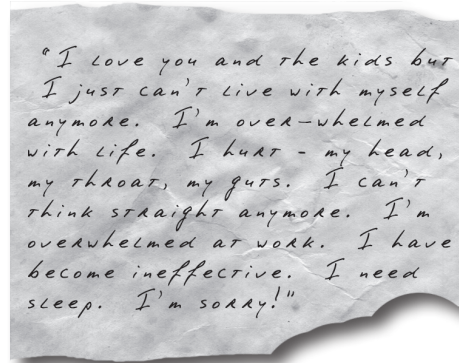 "I love you and the kids but
I just can't live with myself
anymore. I'm over-whelmed
with life. I hurt - my head,
my throat, my guts. I can't
think straight anymore. I'm
overwhelmed at work. I have
become ineffective. I need
sleep. I'm sorry!"